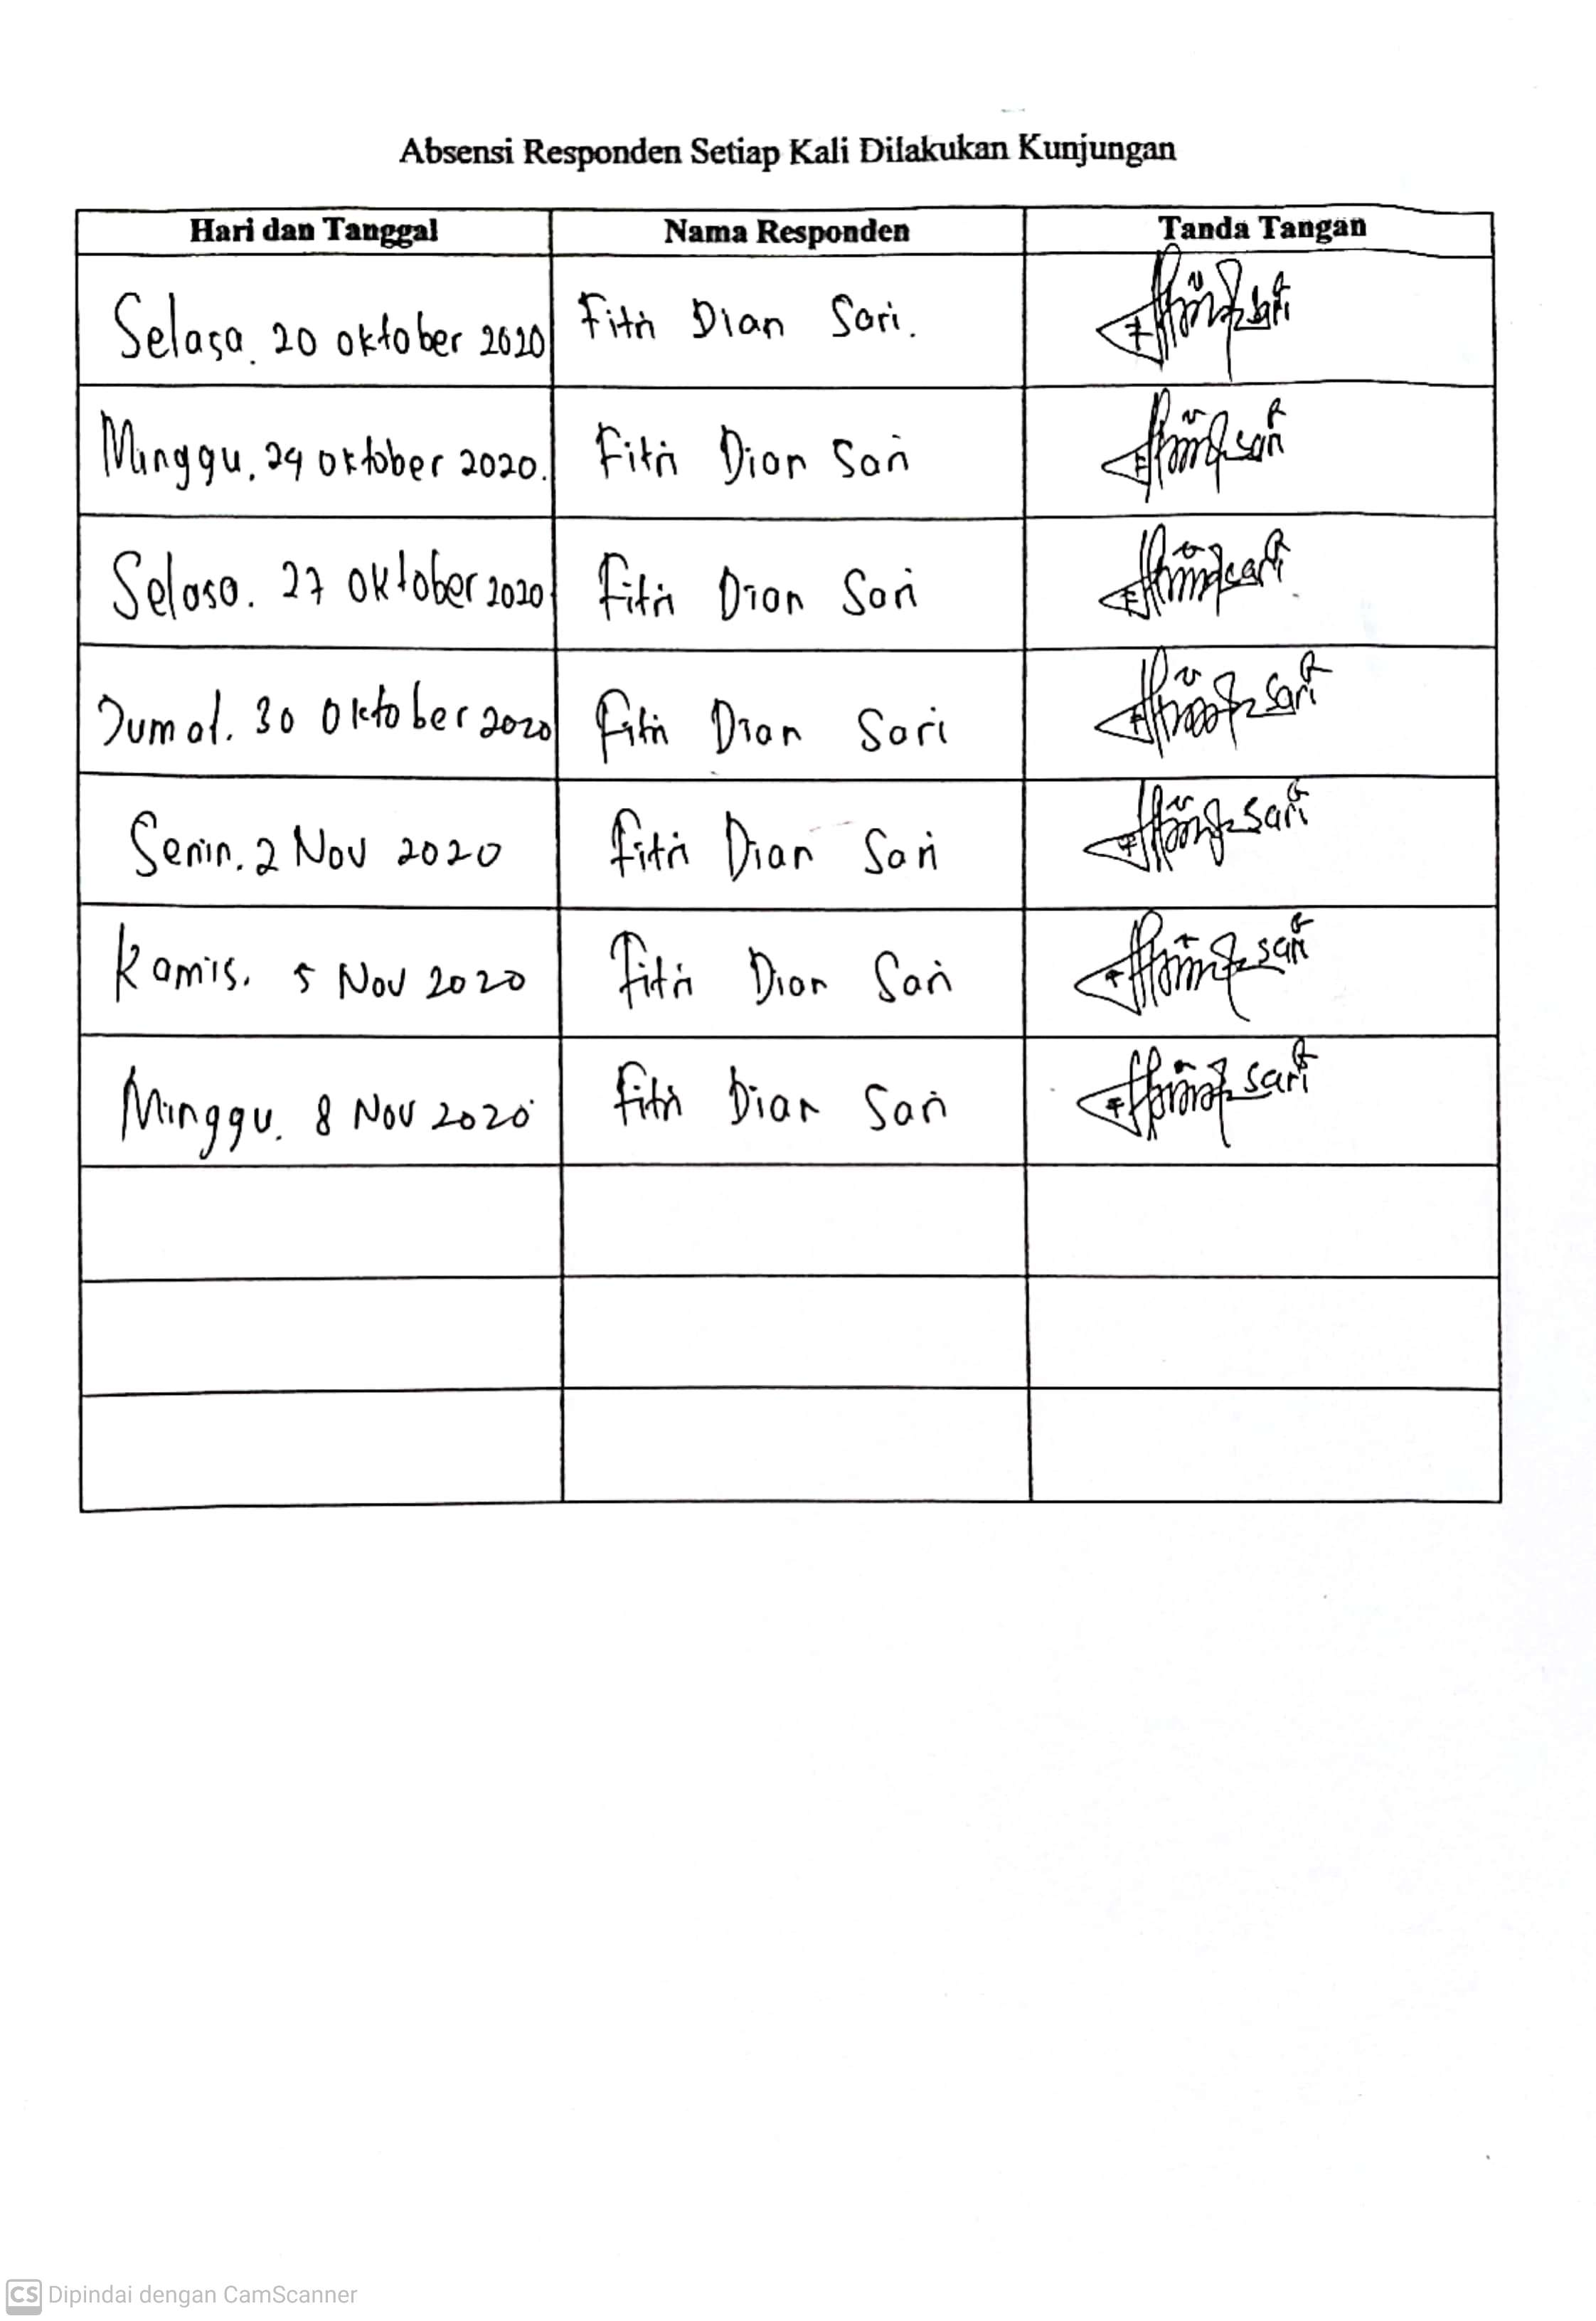 Absensi Responden Setiap Kali Dilakukan Kunjungan
Hari dan Tanggal Nama Responden Tanda Tangan
Selasa. 20 oktober 2020 Fitri Dian Sari.
Minggu. 24 oktober 2020. Fitri Dian Sari
Selasa. 27 Oktober 2020 Fitri Dian Sari
Jumat. 30 Oktober 2020 Fitri Dian Sari
Senin. 2 Nov 2020 Fitri Dian Sari
Kamis. 5 Nov 2020 Fitri Dian Sari
Minggu. 8 Nov 2020 Fitri Dian Sari
CS Dipindai dengan CamScanner